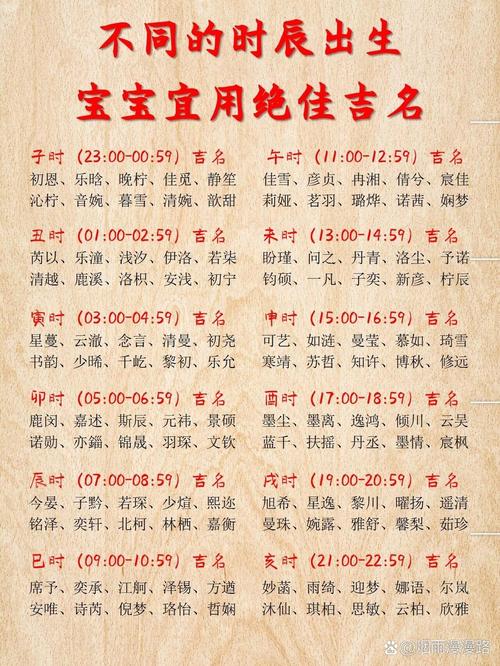 不同的时辰出生
宝宝宜用绝佳吉名
子时(23:00-00:59)吉名
初恩、乐晗、晚柠、佳觅、静笙
沁柠、音婉、暮雪、清婉、歆甜
午时(11:00-12:59)吉名
佳雪、彦贞、冉湘、倩兮、宸佳
莉娅、茗羽、璐烨、诺茜、娴梦
丑时(01:00-02:59)吉名
芮以、乐潼、浅汐、伊洛、若柒
清越、鹿溪、洛枳、安浅、初宁
未时(13:00-14:59)吉名
盼瑾、问之、丹青、洛尘、予诺
钧硕、一凡、子奕、新彦、柠辰
寅时(03:00-04:59)吉名
星蔓、云澈、念言、清曼、初尧
书韵、少晞、千屹、黎初、乐允
申时(15:00-16:59)吉名
可艺、如涟、曼莹、慕如、琦雪
寒靖、苏哲、知许、博秋、修远
卯时(05:00-06:59)吉名
鹿闵、嘉述、斯辰、元祎、景硕
诺勋、亦锱、锦晟、羽琛、文钦
酉时(17:00-18:59)吉名
墨尘、墨离、逸鸿、倾川、云昊
蓝千、扶摇、丹丞、墨情、宸枫
辰时(07:00-08:59)吉名
今晏、子黔、若琛、少煊、熙迩
铭泽、奕轩、北柯、林栖、嘉衡
戌时(19:00-20:59)吉名
旭希、星逸、黎川、曜扬、遥清
曼珠、婉露、雅舒、馨梨、茹珍
巳时(09:00-10:59)吉名
席予、奕承、江舸、泽锡、方遒
安唯、诗芮、倪梦、珞怡、哲娴
亥时(21:00-22:59)吉名
妙菡、雨绮、迎梦、娜语、尔岚
沐仙、琪柏、思敏、云柏、欣雅
@烟雨漫漫路